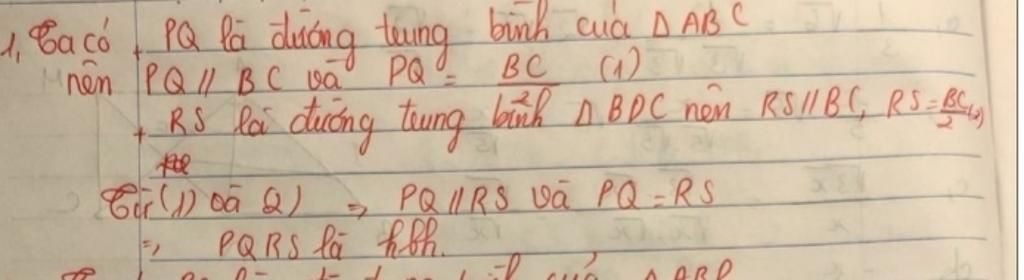 1, Ta có + PQ là đường trung bình của Δ ABC
nên PQ // BC và PQ = BC/2 (1)
+ RS là đường trung bình Δ BDC nên RS // BC, RS = BC/2 (2)
Từ (1) và (2) => PQ // RS và PQ = RS
=> PQRS là hbh.